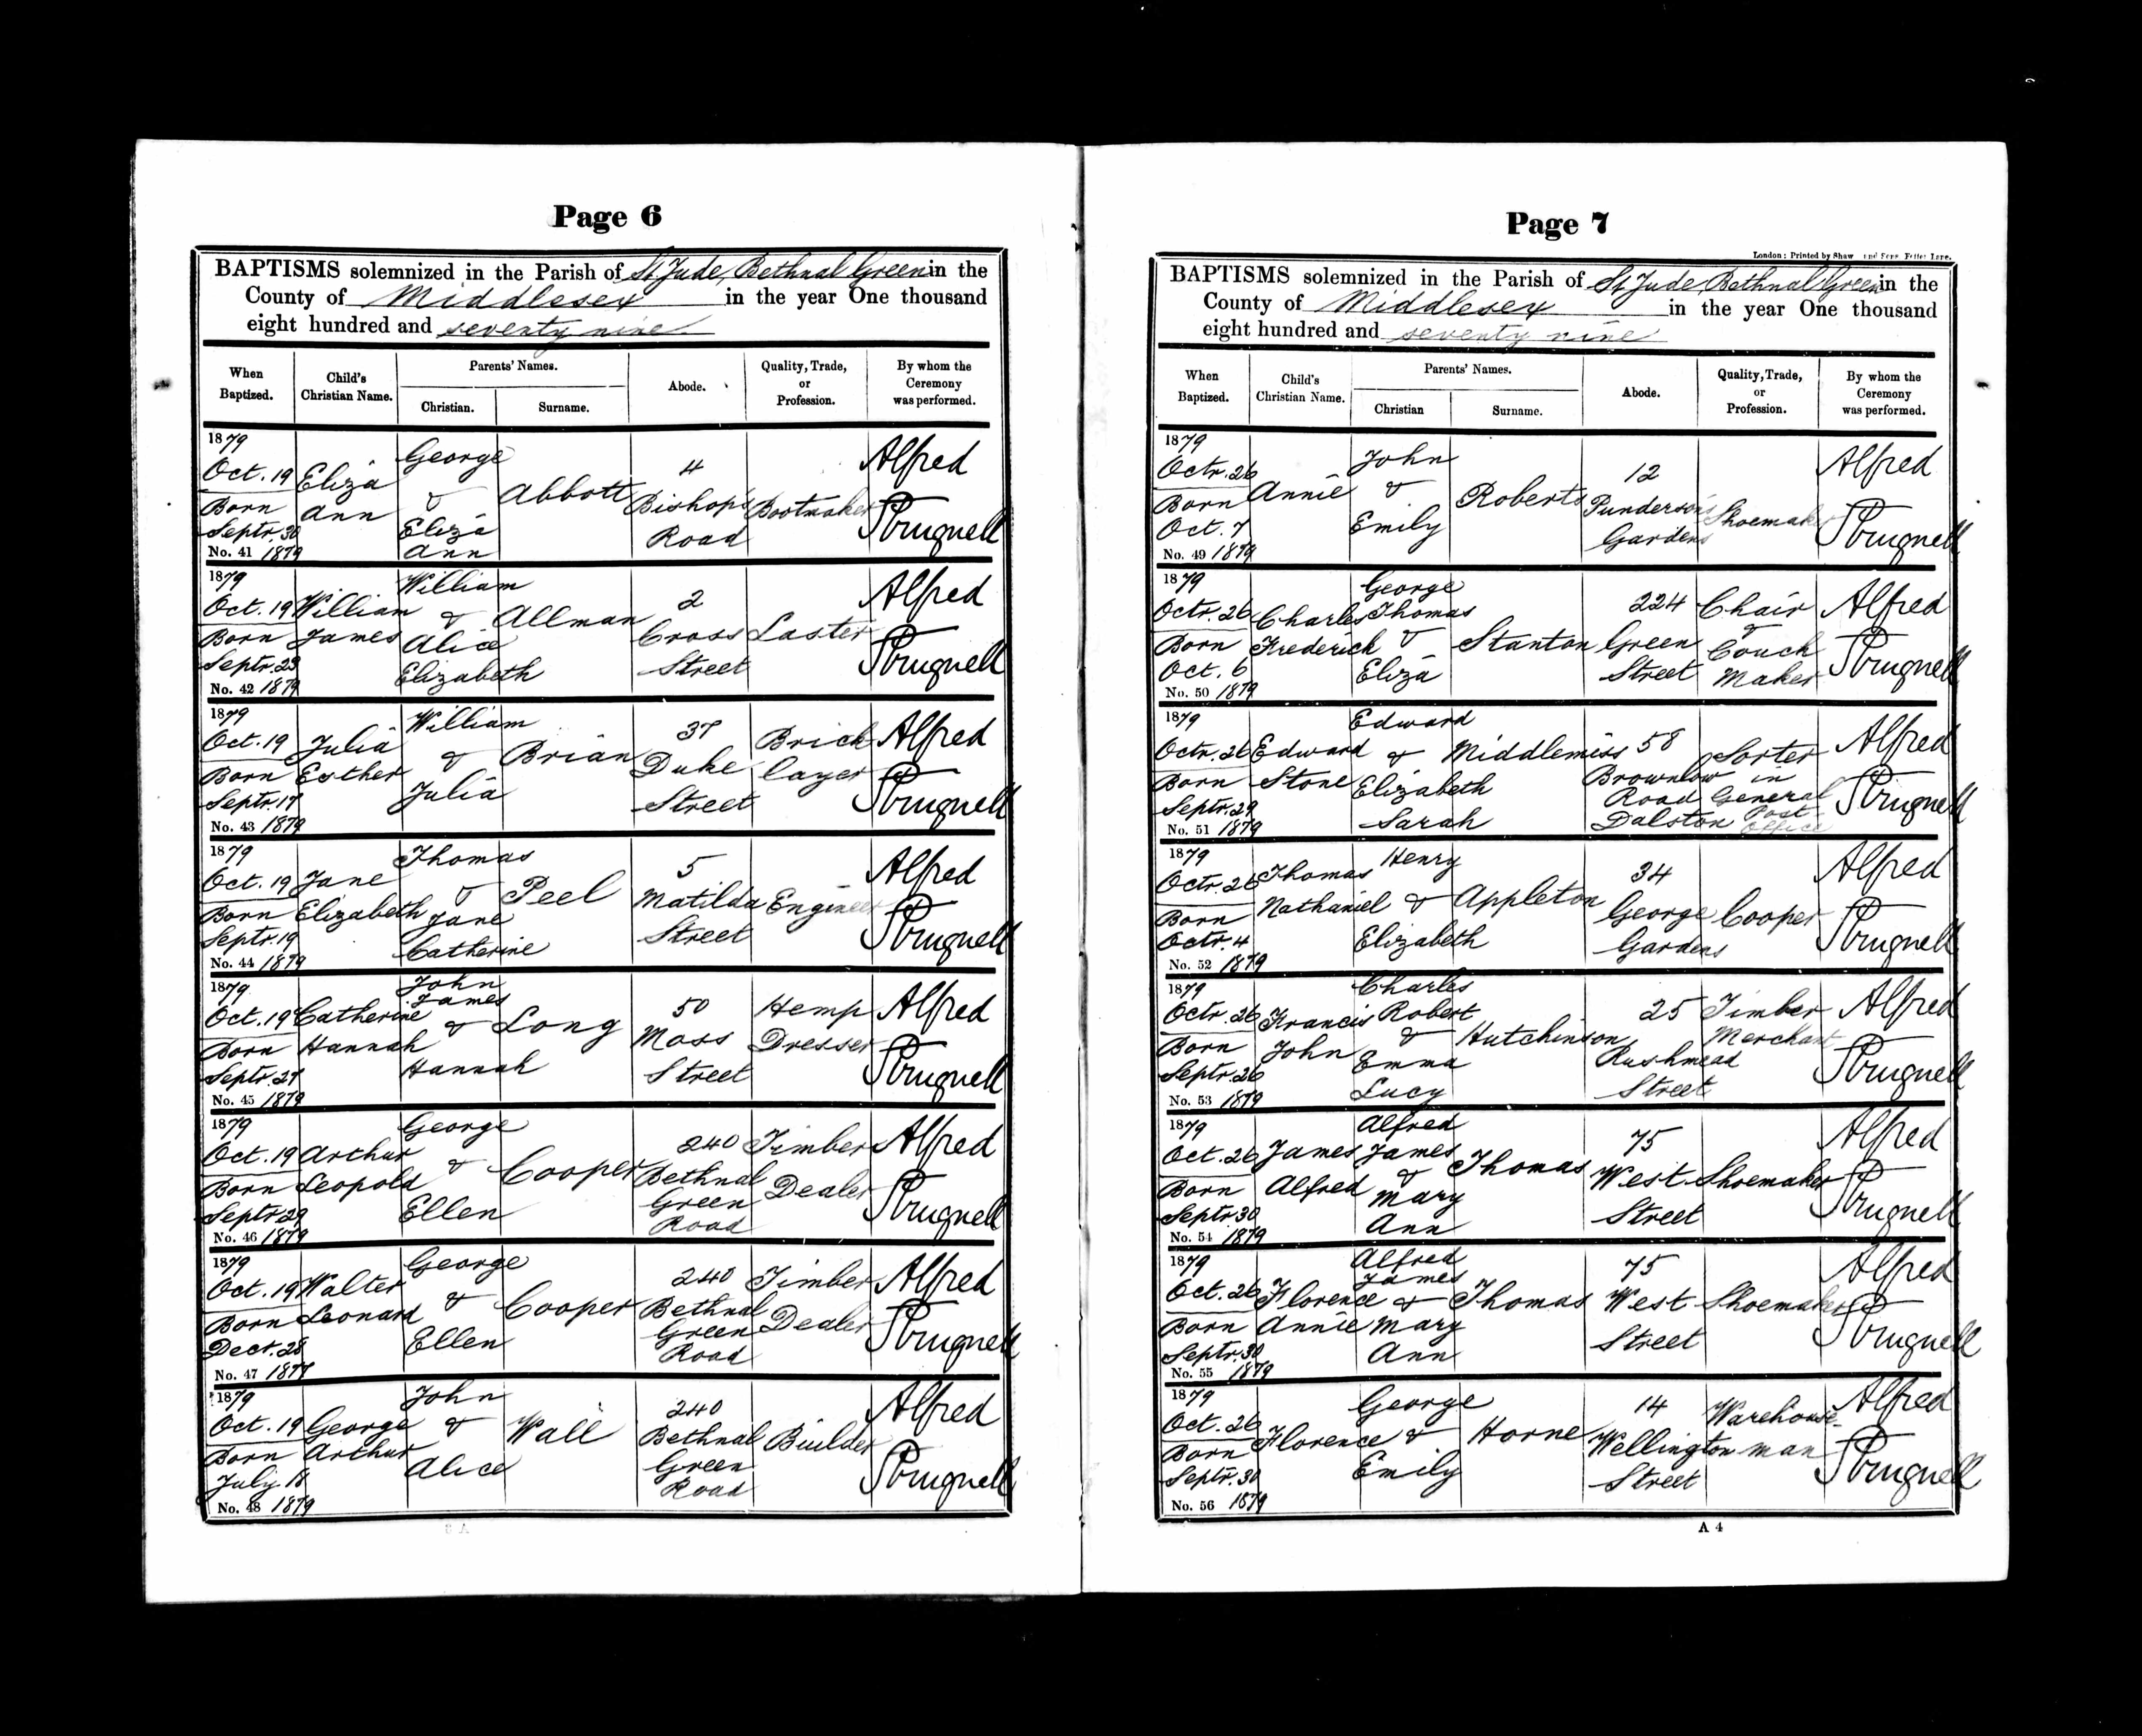 Page 6
BAPTISMS solemnized in the Parish of St Jude, Bethnal Green in the
County of Middlesex in the year One thousand
eight hundred and seventy nine
When Baptized. Child's Christian Name. Parents' Names. Christian. Surname. Abode. Quality, Trade, or Profession. By whom the Ceremony was performed.
1879 Oct. 19 Born Septr. 30 1879 No. 41 Eliza Ann George & Eliza Ann Abbott 4 Bishop's Road Bootmaker Alfred Strugnell
1879 Oct. 19 Born Septr. 23 1879 No. 42 William James William & Alice Elizabeth Allman 2 Cross Street Laster Alfred Strugnell
1879 Oct. 19 Born Septr. 17 1879 No. 43 Julia Esther William & Julia Brian 37 Duke Street Brick layer Alfred Strugnell
1879 Oct. 19 Born Septr. 19 1879 No. 44 Jane Elizabeth Thomas & Jane Catherine Peel 5 Matilda Street Engineer Alfred Strugnell
1879 Oct. 19 Born Septr. 27 1879 No. 45 Catherine Hannah John James & Hannah Long 50 Moss Street Hemp Dresser Alfred Strugnell
1879 Oct. 19 Born Septr. 29 1879 No. 46 Arthur Leopold George & Ellen Cooper 240 Bethnal Green Road Timber Dealer Alfred Strugnell
1879 Oct. 19 Born Dect. 28 1877 No. 47 Walter Leonard George & Ellen Cooper 240 Bethnal Green Road Timber Dealer Alfred Strugnell
1879 Oct. 19 Born July 18 1879 No. 48 George Arthur John & Alice Wall 240 Bethnal Green Road Builder Alfred Strugnell
Page 7
London: Printed by Shaw and Sons, Fetter Lane.
BAPTISMS solemnized in the Parish of St Jude, Bethnal Green in the
County of Middlesex in the year One thousand
eight hundred and seventy nine
When Baptized. Child's Christian Name. Parents' Names. Christian Surname. Abode. Quality, Trade, or Profession. By whom the Ceremony was performed.
1879 Octr. 26 Born Oct. 7 1879 No. 49 Annie John & Emily Roberts 12 Punderson's Gardens Shoemaker Alfred Strugnell
1879 Octr. 26 Born Oct. 6 1879 No. 50 Charles Frederick George Thomas & Eliza Stanton 224 Green Street Chair & Couch Maker Alfred Strugnell
1879 Octr. 26 Born Septr. 29 1879 No. 51 Edward Stone Edward & Elizabeth Sarah Middlemiss 58 Brownlow Road Dalston Sorter in General Post Office Alfred Strugnell
1879 Octr. 26 Born Octr. 4 1879 No. 52 Thomas Nathaniel Henry & Elizabeth Appleton 34 George Gardens Cooper Alfred Strugnell
1879 Octr. 26 Born Septr. 26 1879 No. 53 Francis John Charles Robert & Emma Lucy Hutchinson 25 Rushmead Street Timber Merchant Alfred Strugnell
1879 Oct. 26 Born Septr. 30 1879 No. 54 James Alfred Alfred James & Mary Ann Thomas 75 West Street Shoemaker Alfred Strugnell
1879 Oct. 26 Born Septr. 30 1879 No. 55 Florence Annie Alfred James & Mary Ann Thomas 75 West Street Shoemaker Alfred Strugnell
1879 Oct. 26 Born Septr. 30 1879 No. 56 Florence George & Emily Horne 14 Wellington Street Warehouse-man Alfred Strugnell
A 4